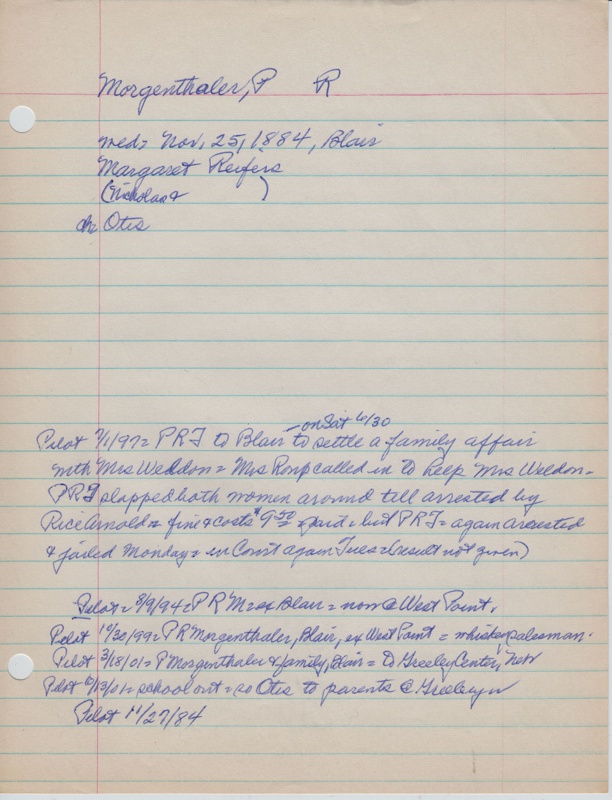 Morgenthaler, P R
med= Nov. 25, 1884, Blair
Margaret Reifers
(Nicholas & )
ch Otis
on Sat 6/30
Pilot 7/1/97= PRJ to Blair to settle a family affair
with Mrs Weddon = Mrs called in to help Mrs Weldon-
PRJ slapped both women around till arrested by
Rice Arnold = fine & costs $9.50 = paid = but PRJ = again arrested
& jailed Monday = in Court again Tues = (result not given)
Pilot = 8/9/94 = P R M = ex Blair = now @ West Point.
Pilot 10/30/99= P R Morgenthaler, Blair, ex West Point = whiskey salesman.
Pilot 3/18/01= P Morgenthaler & family, Blair = to Greeley Center, Neb
Pilot 6/13/01= school out = so Otis to parents @ Greeley
Pilot 11/27/84